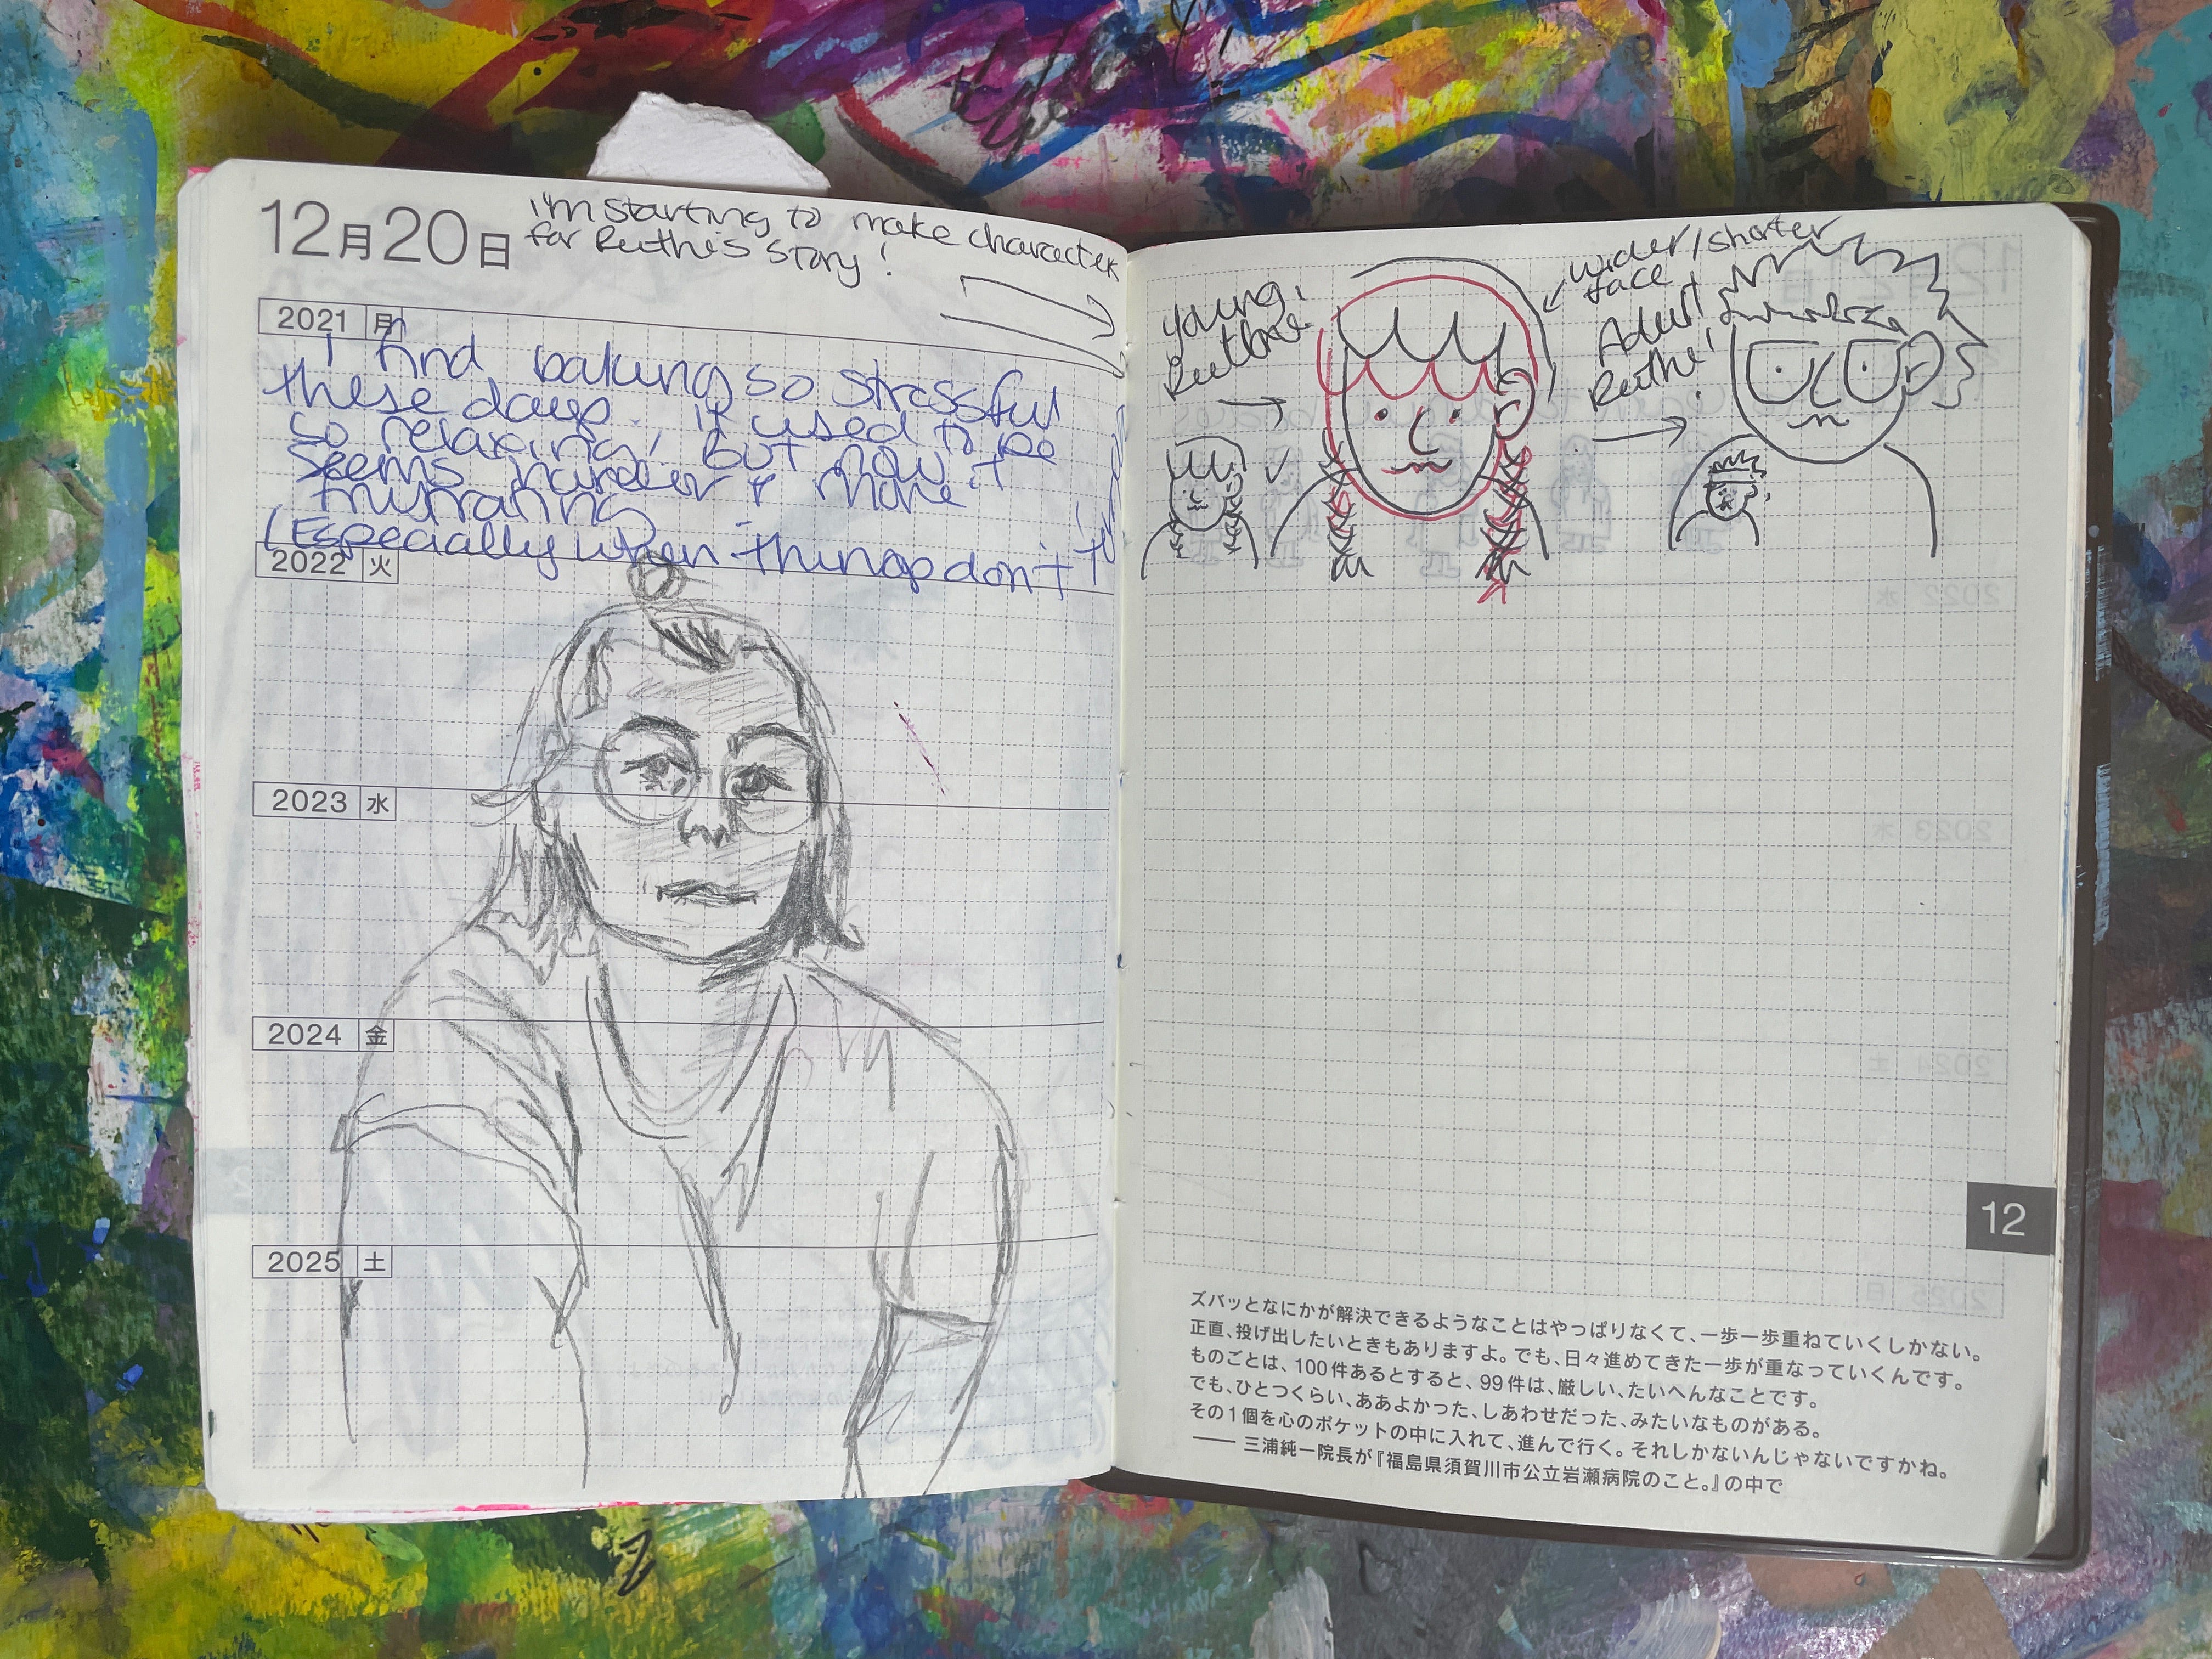 12月20日
i'm starting to make character
for Ruthie's story!
2021 月
I find baking so stressful
these days. it used to be
so relaxing, but now it
seems harder & more
frustrating
(Especially when things don't
2022 火
2023 水
2024 金
2025 土
young
Ruthie
wider/shorter
face
Adult
Ruthie!
12
ズバッとなにかが解決できるようなことはやっぱりなくて、一歩一歩重ねていくしかない。
正直、投げ出したいときもありますよ。でも、日々進めてきた一歩が重なっていくんです。
ものごとは、100件あるとすると、99件は、厳しい、たいへんなことです。
でも、ひとつくらい、ああよかった、しあわせだった、みたいなものがある。
その1個を心のポケットの中に入れて、進んで行く。それしかないんじゃないですかね。
—— 三浦純一院長が『福島県須賀川市公立岩瀬病院のこと。』の中で